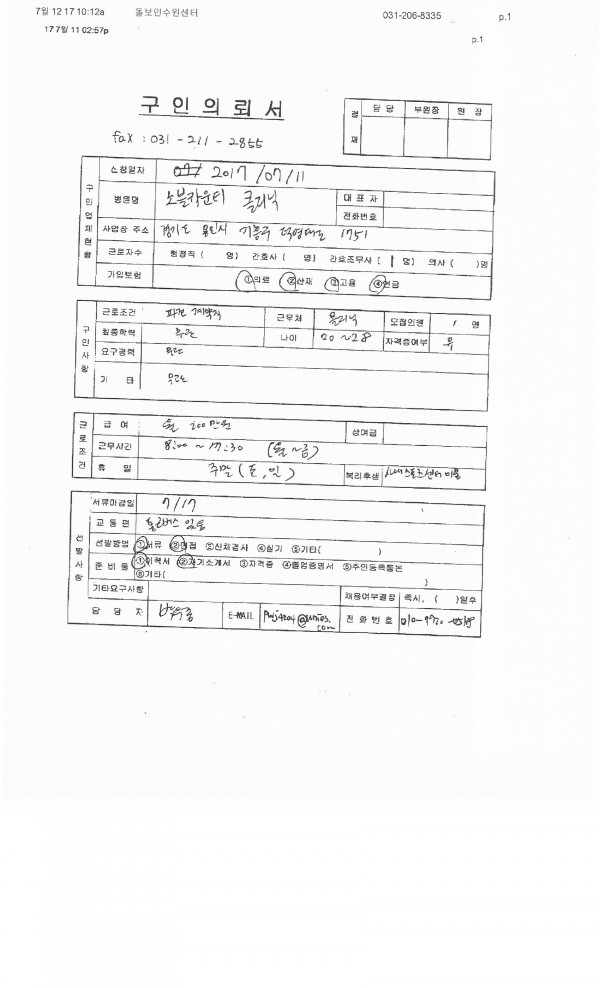 7월 12 17 10:12a 돌보인수원센터 031-206-8335 p.1
17 7월 11 02:57p p.1
구인의뢰서
결재 담당 부원장 원장
fax : 031 - 211 - 2855
구인업체현황
신청일자 2017 /07/11
병원명 노블카운티 클리닉 대표자
전화번호
사업장 주소 경기도 용인시 기흥구 덕영대로 1751
근로자수 행정직 ( 명) 간호사 ( 명) 간호조무사 ( 1 명) 의사 ( )명
가입보험 ①의료 ②산재 ③고용 ④연금
구인사항
근로조건 파견 계약직 근무처 클리닉 모집인원 1 명
최종학력 무관 나이 20 ~28 자격증여부 유
요구경력 무관
기타 무관
근로조건
급여 월 200만원 상여금
근무시간 8:00 ~ 17:30 (월~금)
휴일 주말 (토, 일) 복리후생 사내스포츠센터 이용
선발사항
서류마감일 7/17
교통편 셔틀버스 있음
선발방법 ①서류 ②면접 ③신체검사 ④실기 ⑤기타( )
준비물 ①이력서 ②자기소개서 ③자격증 ④졸업증명서 ⑤주민등록등본
⑥기타( )
기타요구사항 채용여부결정 즉시, ( )일후
담당자 E-MAIL 전화번호